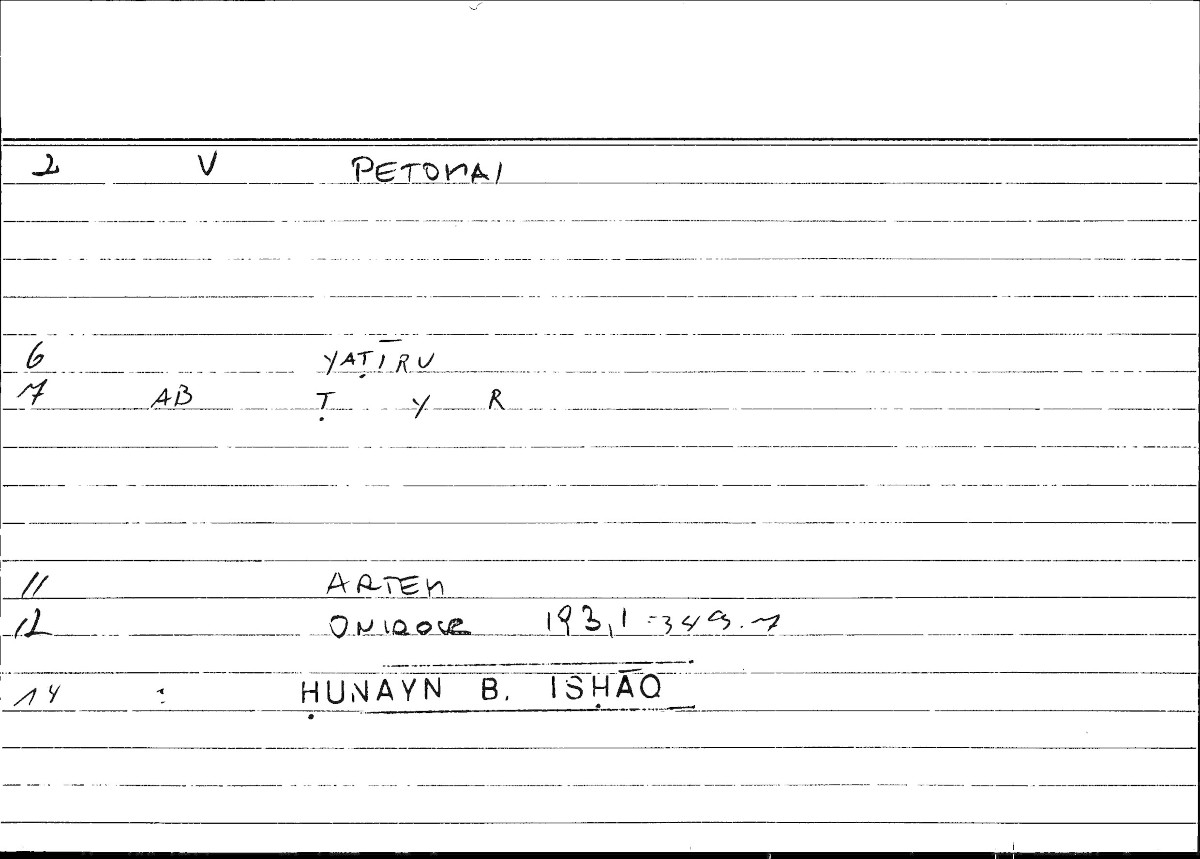 2 V PETOMAI
6 YAṬĪRU
7 AB Ṭ Y R
11 ARTEM
12 ONIROCR 193,1 = 349.7
14 : ḤUNAYN B. ISḤĀQ